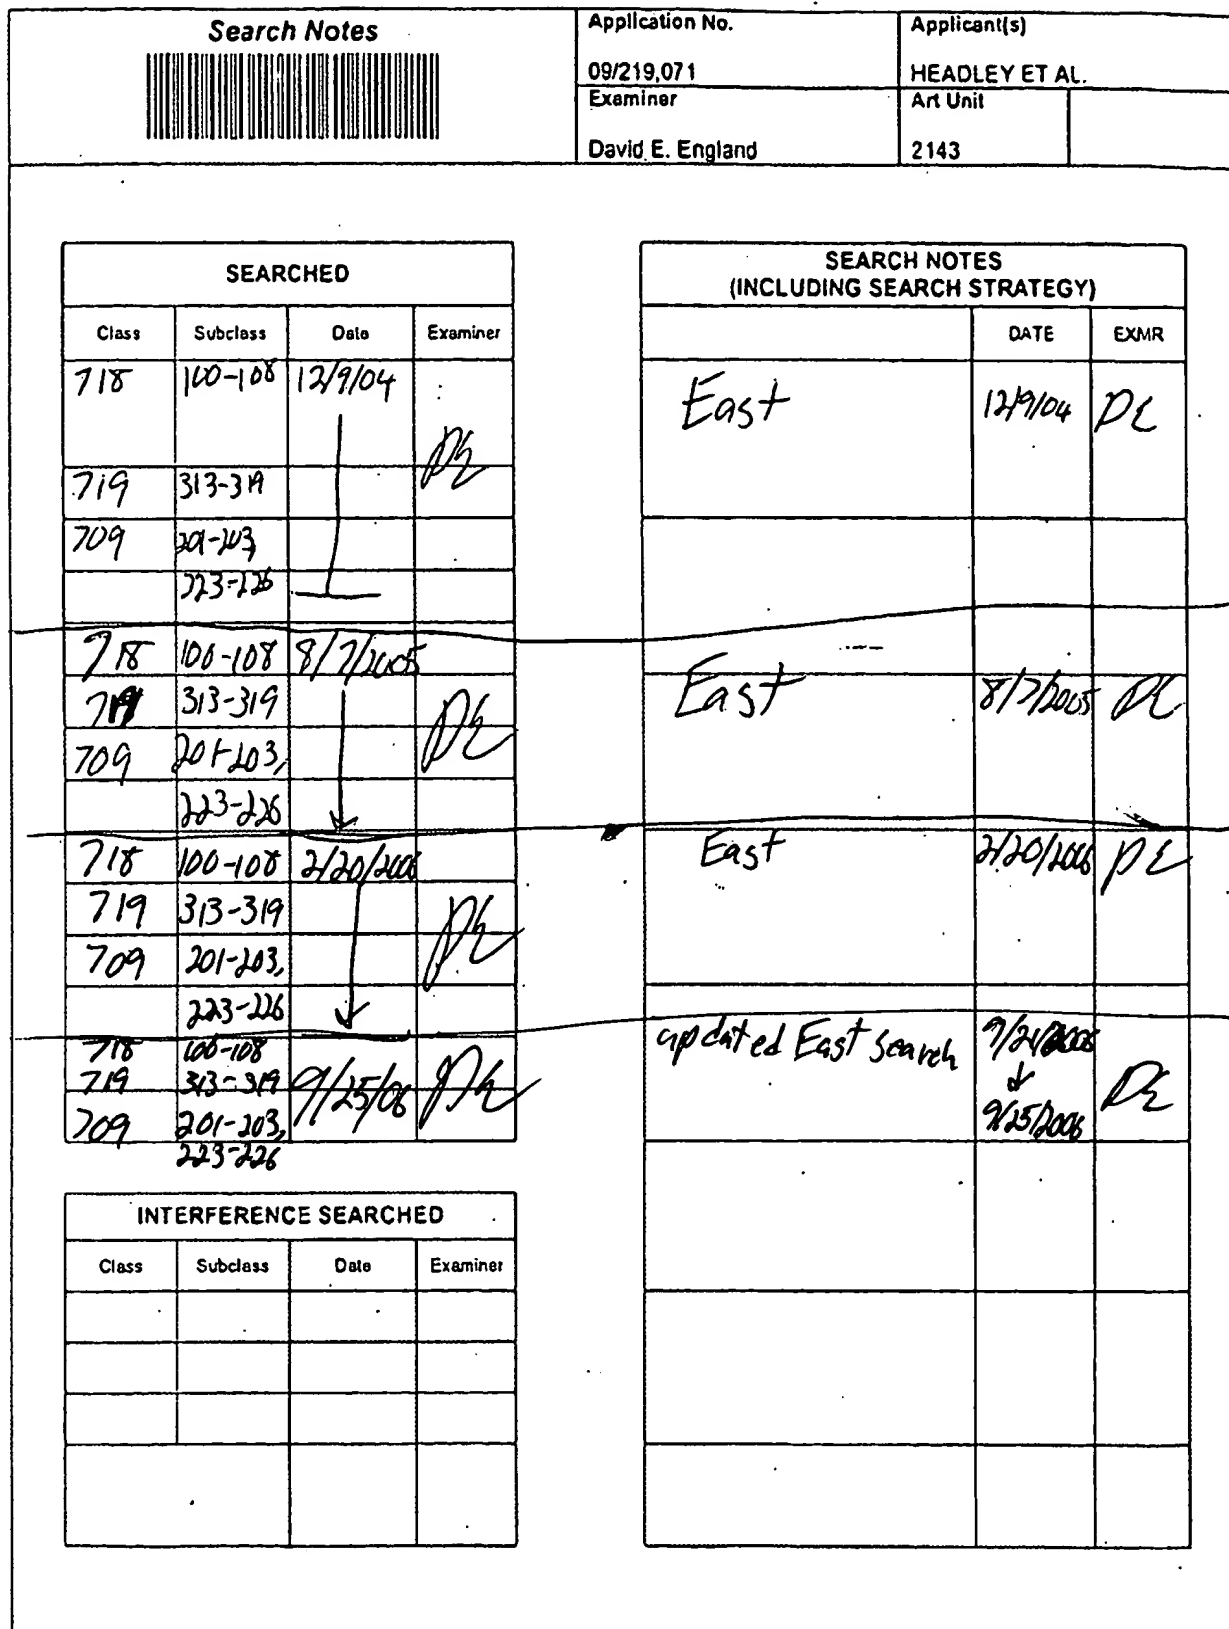 Search Notes
Application No.
Applicant(s)
09/219,071
HEADLEY ET AL.
Examiner
Art Unit
David E. England
2143
SEARCHED
Class Subclass Date Examiner
718 100-108 12/9/04
DE
719 313-319
709 201-203,
223-226
718 100-108 8/7/2005
719 313-319
DE
709 201-203,
223-226
718 100-108 2/20/2006
719 313-319
DE
709 201-203,
223-226
718 100-108
719 313-319 9/25/06 DE
709 201-203,
223-226
INTERFERENCE SEARCHED
Class Subclass Date Examiner
SEARCH NOTES
(INCLUDING SEARCH STRATEGY)
DATE EXMR
East 12/9/04 DE
East 8/7/2005 DE
East 2/20/2006 DE
updated East search 9/21/2006
DE
9/25/2006